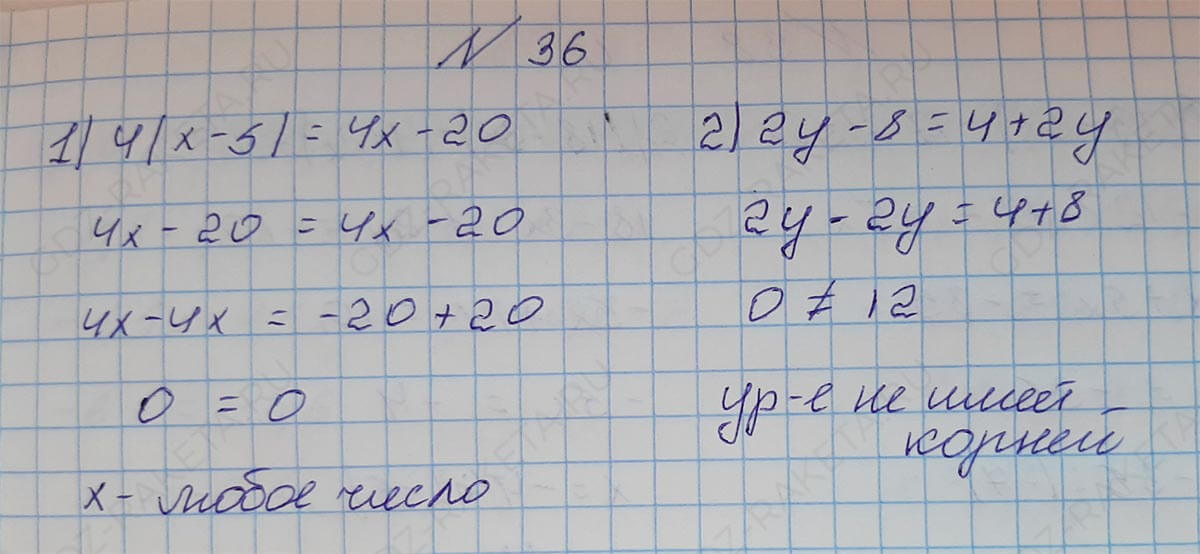 N 36
1) 4(x-5) = 4x-20
4x - 20 = 4x - 20
4x-4x = -20+20
0 = 0
x- любое число
2) 2y-8=4+2y
2y - 2y = 4+8
0 ≠ 12
ур-е не имеет
корней
GDZ-RAKETA.RU